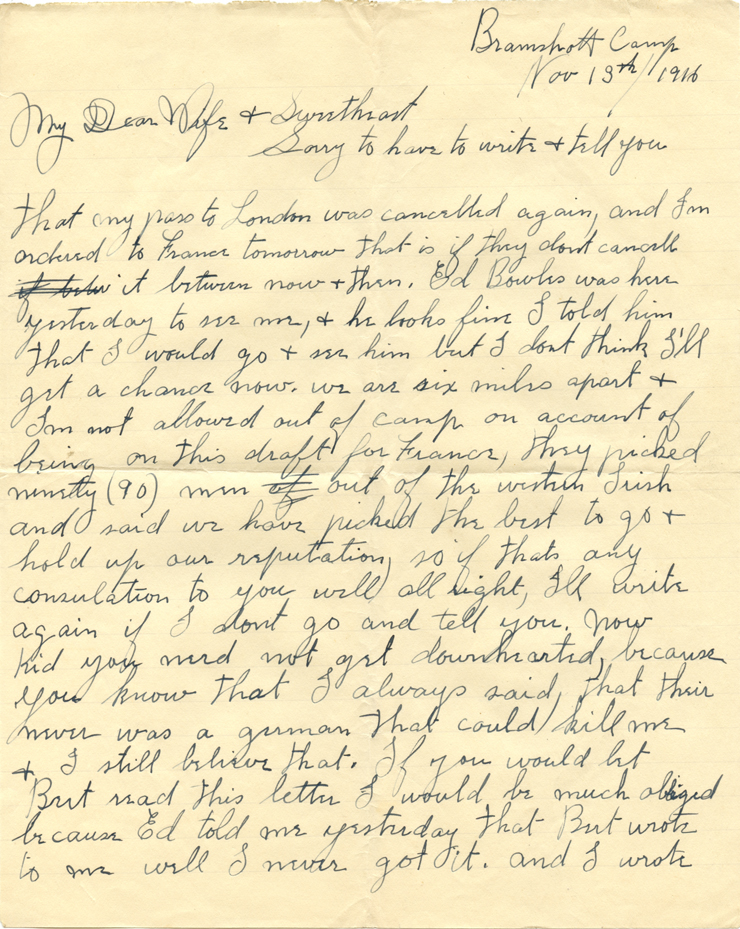 Bramshott Camp
Nov 13th/1916
My Dear Wife & Sweetheart
Sorry to have to write & tell you
that my pass to London was cancelled again, and I'm
ordered to France tomorrow that is if they dont cancell
it between now & then. Ed Bowles was here
yesterday to see me, & he looks fine I told him
that I would go & see him but I dont think I'll
get a chance now. we are six miles apart &
I'm not allowed out of camp on account of
being on this draft for France, they picked
ninetty (90) men of out of the western Irish
and said we have picked the best to go &
hold up our reputation, so if thats any
consulation to you well all right, I'll write
again if I dont go and tell you. Now
kid you need not get downhearted, because
you know that I always said, that their
never was a german that could kill me
& I still believe that. If you would let
Bert read this letter I would be much obliged
because Ed told me yesterday that Bert wrote
to me well I never got it. and I wrote